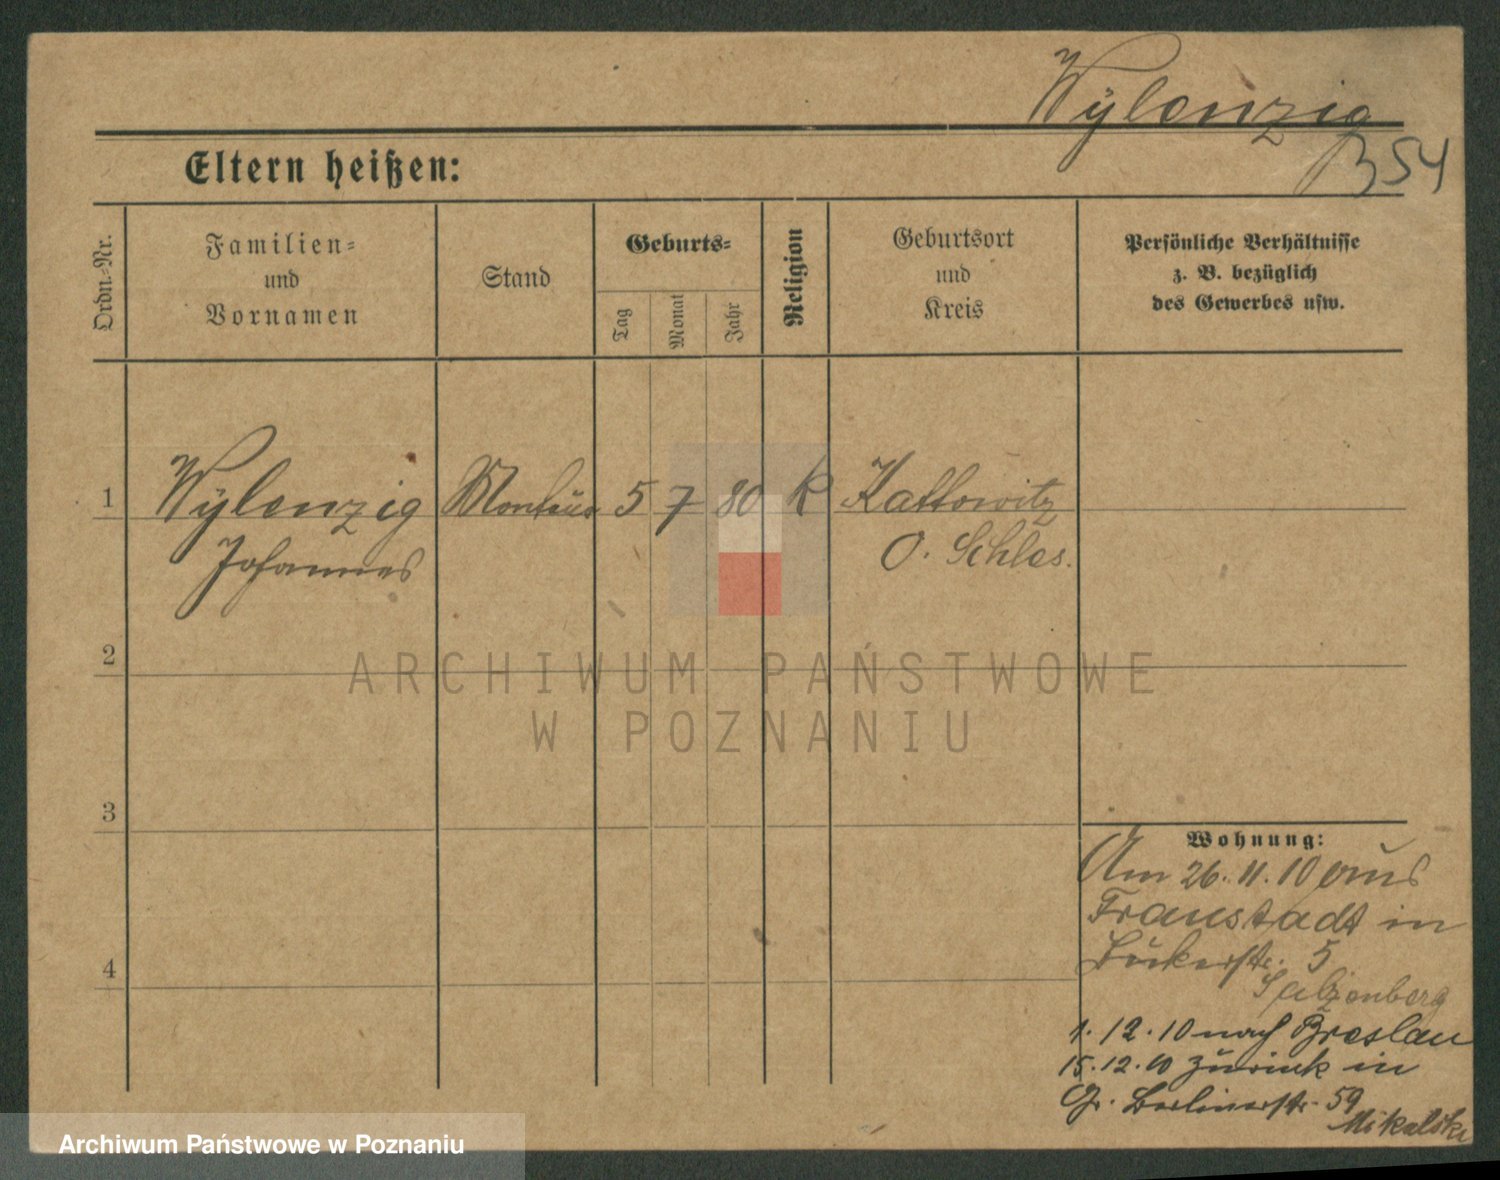 Wylenzig
354
Eltern heißen:
Ordn.-Nr.
Familien-
und
Vornamen
Stand
Geburts-
Tag
Monat
Jahr
Religion
Geburtsort
und
Kreis
Persönliche Verhältnisse
z. B. bezüglich
des Gewerbes usw.
1 Wylenzig Monteur 5 7 80 K Kattowitz
Johannes O. Schles.
2
3
4
Wohnung:
Am 26.11.10 aus
Fraustadt in
5
Salzenberg
1.12.10 nach Breslau
15.12.10 zurück in
Gr. Berlinerstr. 59
Mikalski
ARCHIWUM PAŃSTWOWE
W POZNANIU
Archiwum Państwowe w Poznaniu